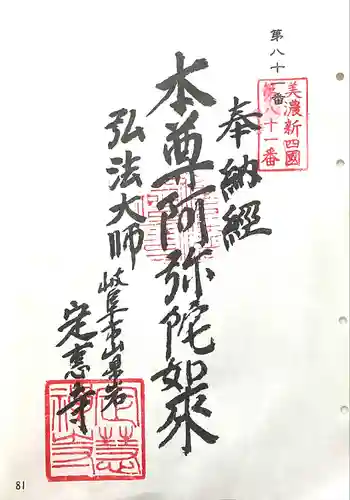 第八十一番
美濃新四國
第八十一番
奉納經
本尊阿弥陀如来
弘法大師
岐阜市山県岩
定恵寺
81